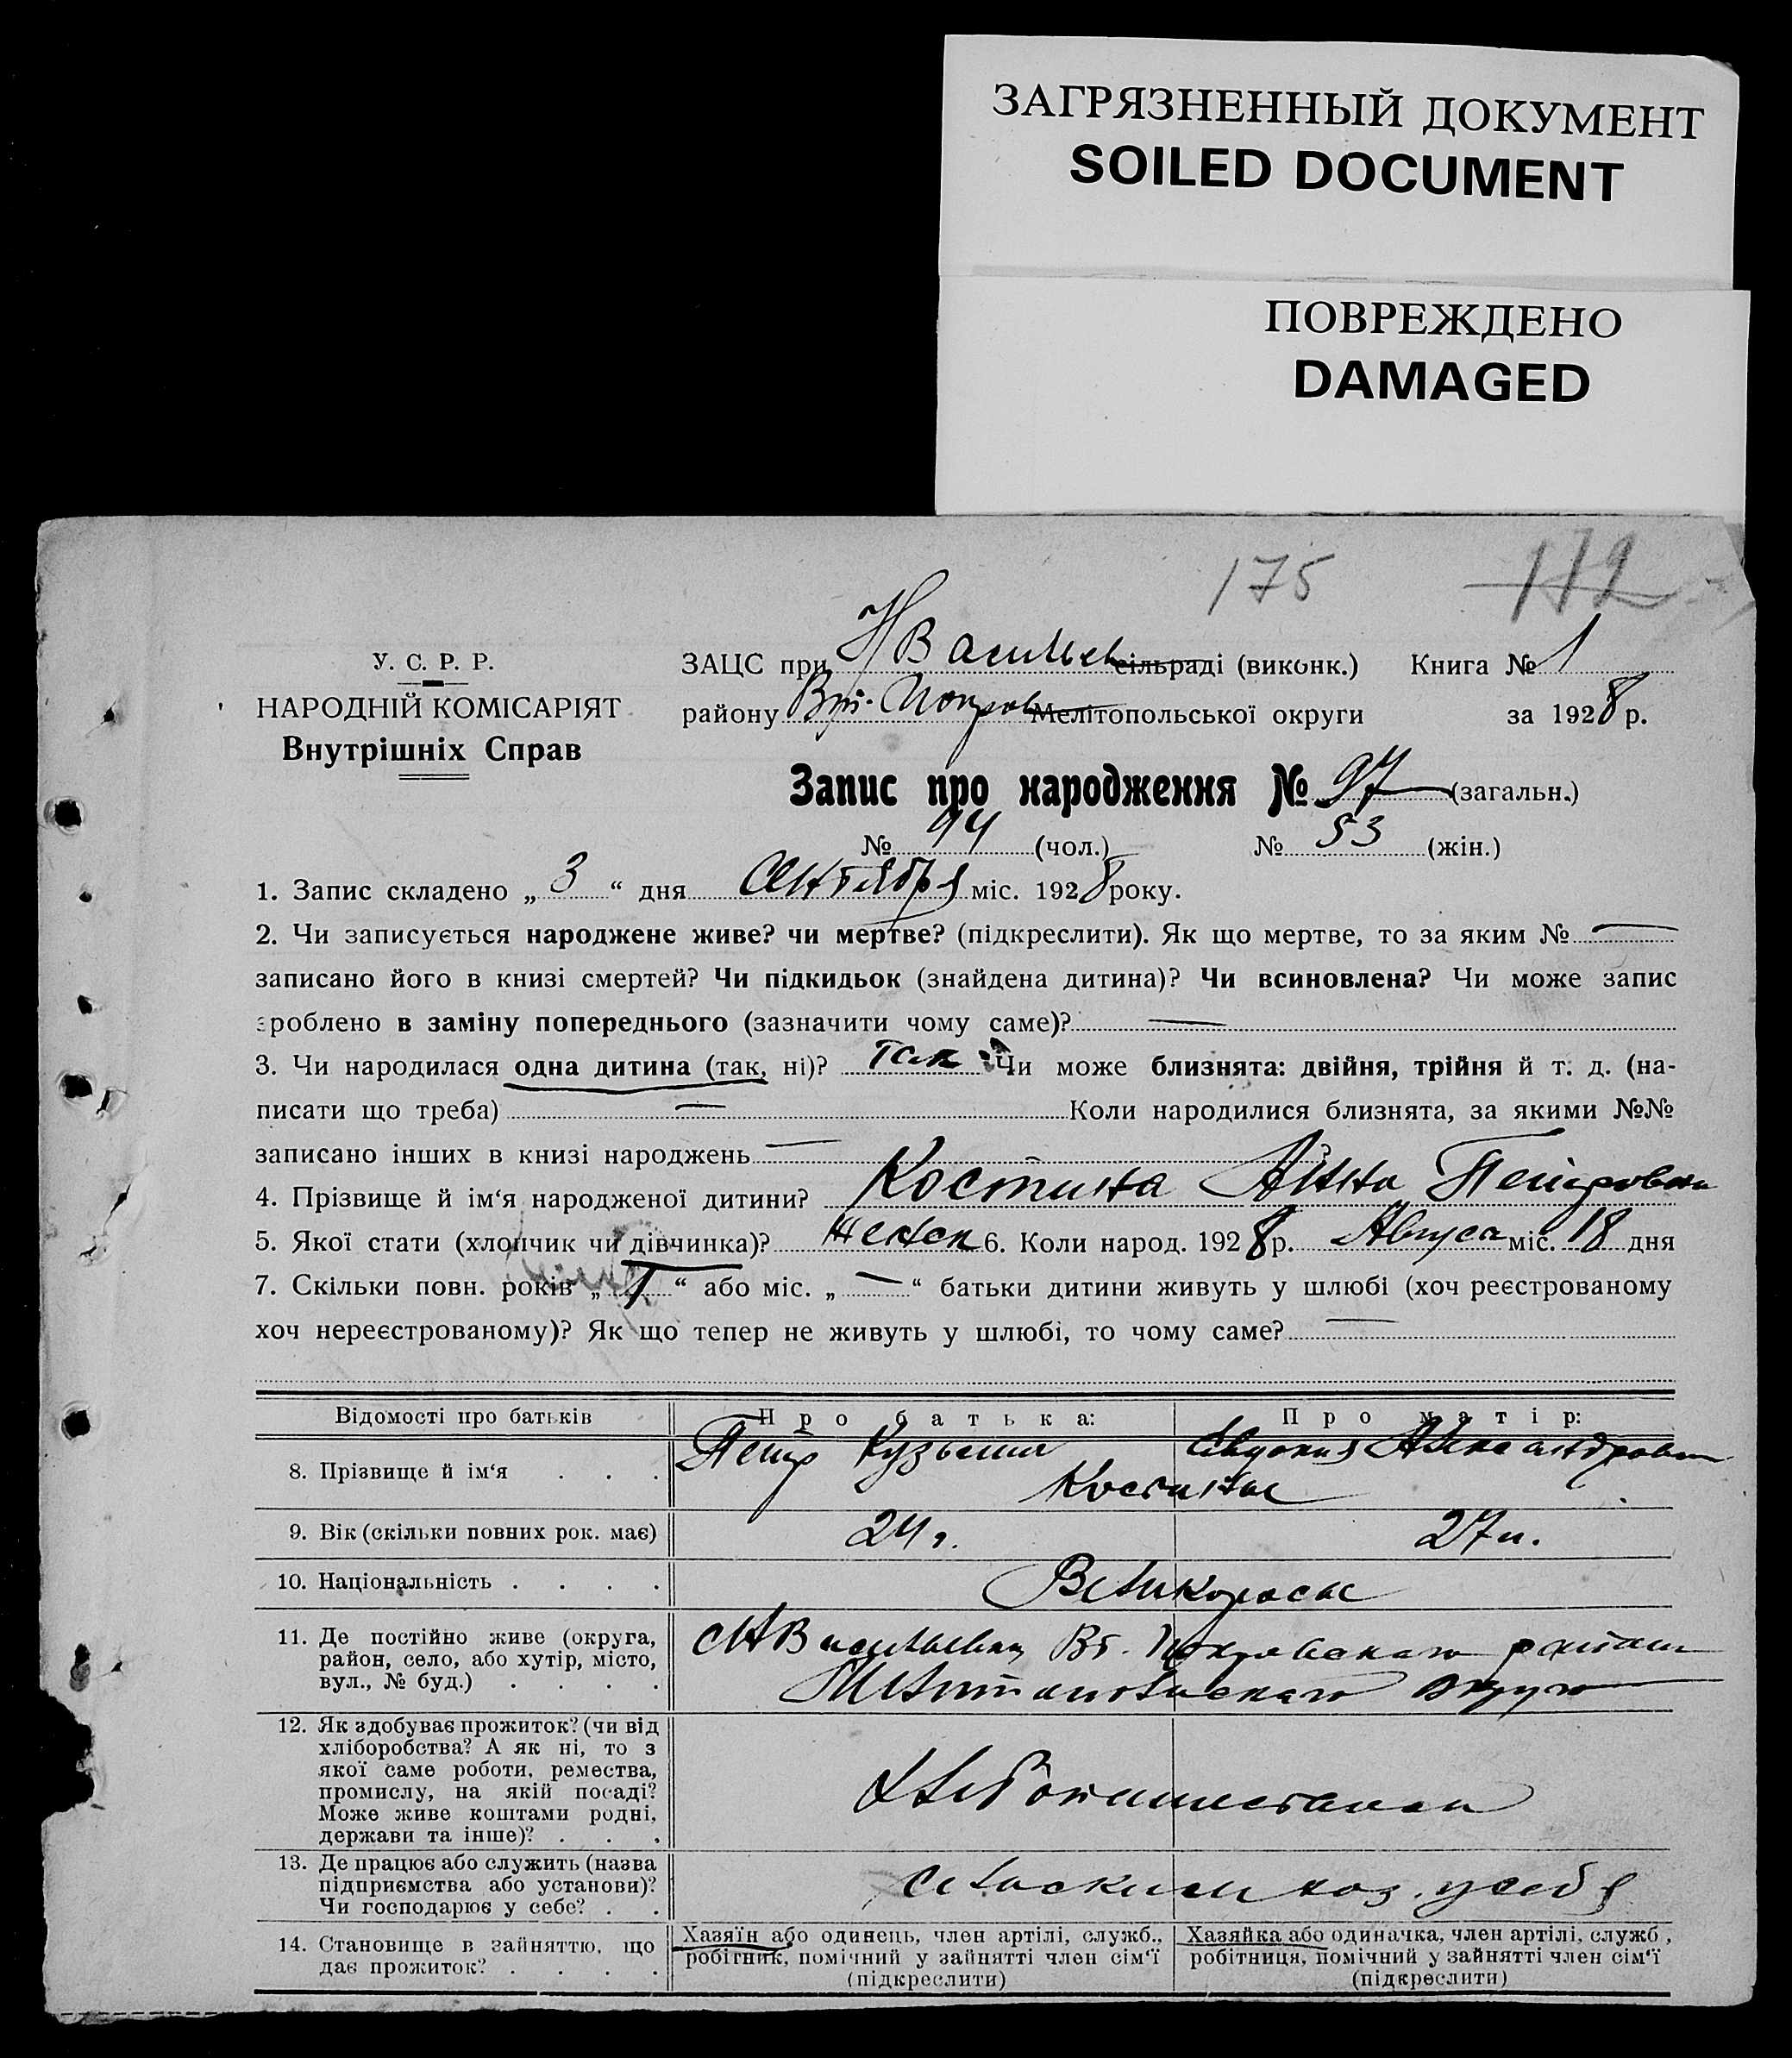 ЗАГРЯЗНЕННЫЙ ДОКУМЕНТ
SOILED DOCUMENT
ПОВРЕЖДЕНО
DAMAGED
175 112
У. С. Р. Р.
НАРОДНІЙ КОМІСАРІЯТ
Внутрішніх Справ
ЗАЦС при Н Васильев сільраді (виконк.) Книга № 1
району Вт. Покров Мелітопольської округи за 1928 р.
Запис про народження № 97 (загальн.)
№ 44 (чол.) № 53 (жін.)
1. Запис складено „ 3 “ дня Сентября міс. 1928 року.
2. Чи записується народжене живе? чи мертве? (підкреслити). Як що мертве, то за яким № —
записано його в книзі смертей? Чи підкидьок (знайдена дитина)? Чи всиновлена? Чи може запис
зроблено в заміну попереднього (зазначити чому саме)? —
3. Чи народилася одна дитина (так, ні)? так Чи може близнята: двійня, трійня й т. д. (на-
писати що треба) — Коли народилися близнята, за якими №№
записано інших в книзі народжень —
4. Прізвище й ім‘я народженої дитини? Костина Анна Петровна
5. Якої стати (хлопчик чи дівчинка)? женск 6. Коли народ. 1928 р. Августа міс. 18 дня
7. Скільки повн. років „ 1 “ або міс. „ — “ батьки дитини живуть у шлюбі (хоч реєстрованому
хоч нереєстрованому)? Як що тепер не живуть у шлюбі, то чому саме? —
Відомості про батьків Про батька: Про матір:
8. Прізвище й ім‘я . . . Петр Кузьмич Евдокия Александровна
Костины
9. Вік (скільки повних рок. має) 24 г. 27 л.
10. Національність . . . . Великоросы
11. Де постійно живе (округа, район, село, або хутір, місто, вул., № буд.) . . . . Н Васильевки Вт. Покровского района
Мелитопольского округа
12. Як здобуває прожиток? (чи від
хліборобства? А як ні, то з
якої саме роботи, ремества,
промислу, на якій посаді?
Може живе коштами родні,
держави та інше)? . . .
Хлебопашеством
13. Де працює або служить (назва
підприємства або установи)?
Чи господарює у себе? . .
сельским хоз. у себя
14. Становище в зайняттю, що
дає прожиток? . . . .
Хазяїн або одинець, член артілі, служб.,
робітник, помічний у зайнятті член сім‘ї
(підкреслити)
Хазяйка або одиначка, член артілі, служб,
робітниця, помічний у зайнятті член сім‘ї
(підкреслити)